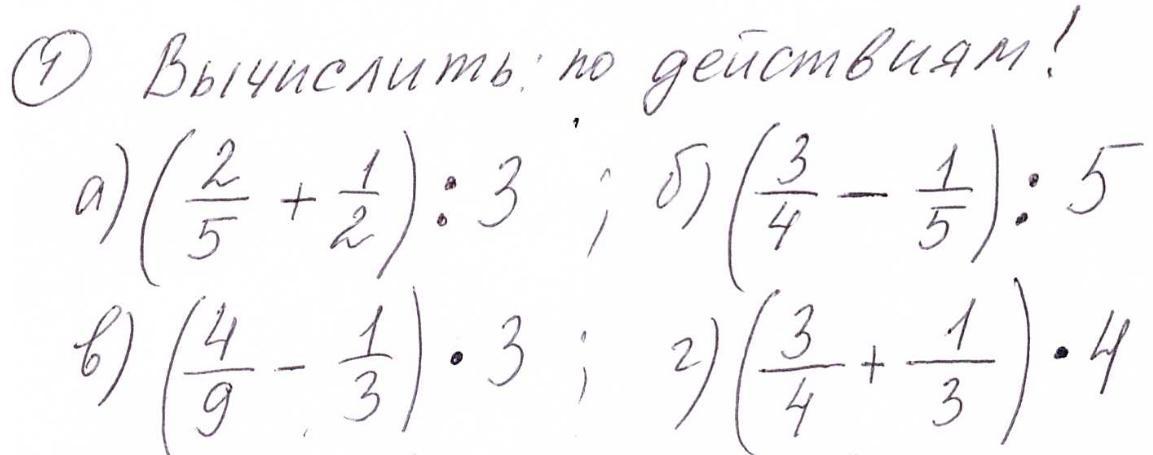 ① Вычислить: по действиям!
а) (2/5 + 1/2) : 3 ; б) (3/4 − 1/5) : 5
в) (4/9 − 1/3) · 3 ; г) (3/4 + 1/3) · 4